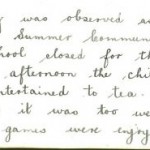 y was observed as
Summer Commun
hool closed for th
afternoon the chi
ntertained to tea.
it was too we
games were enjoy